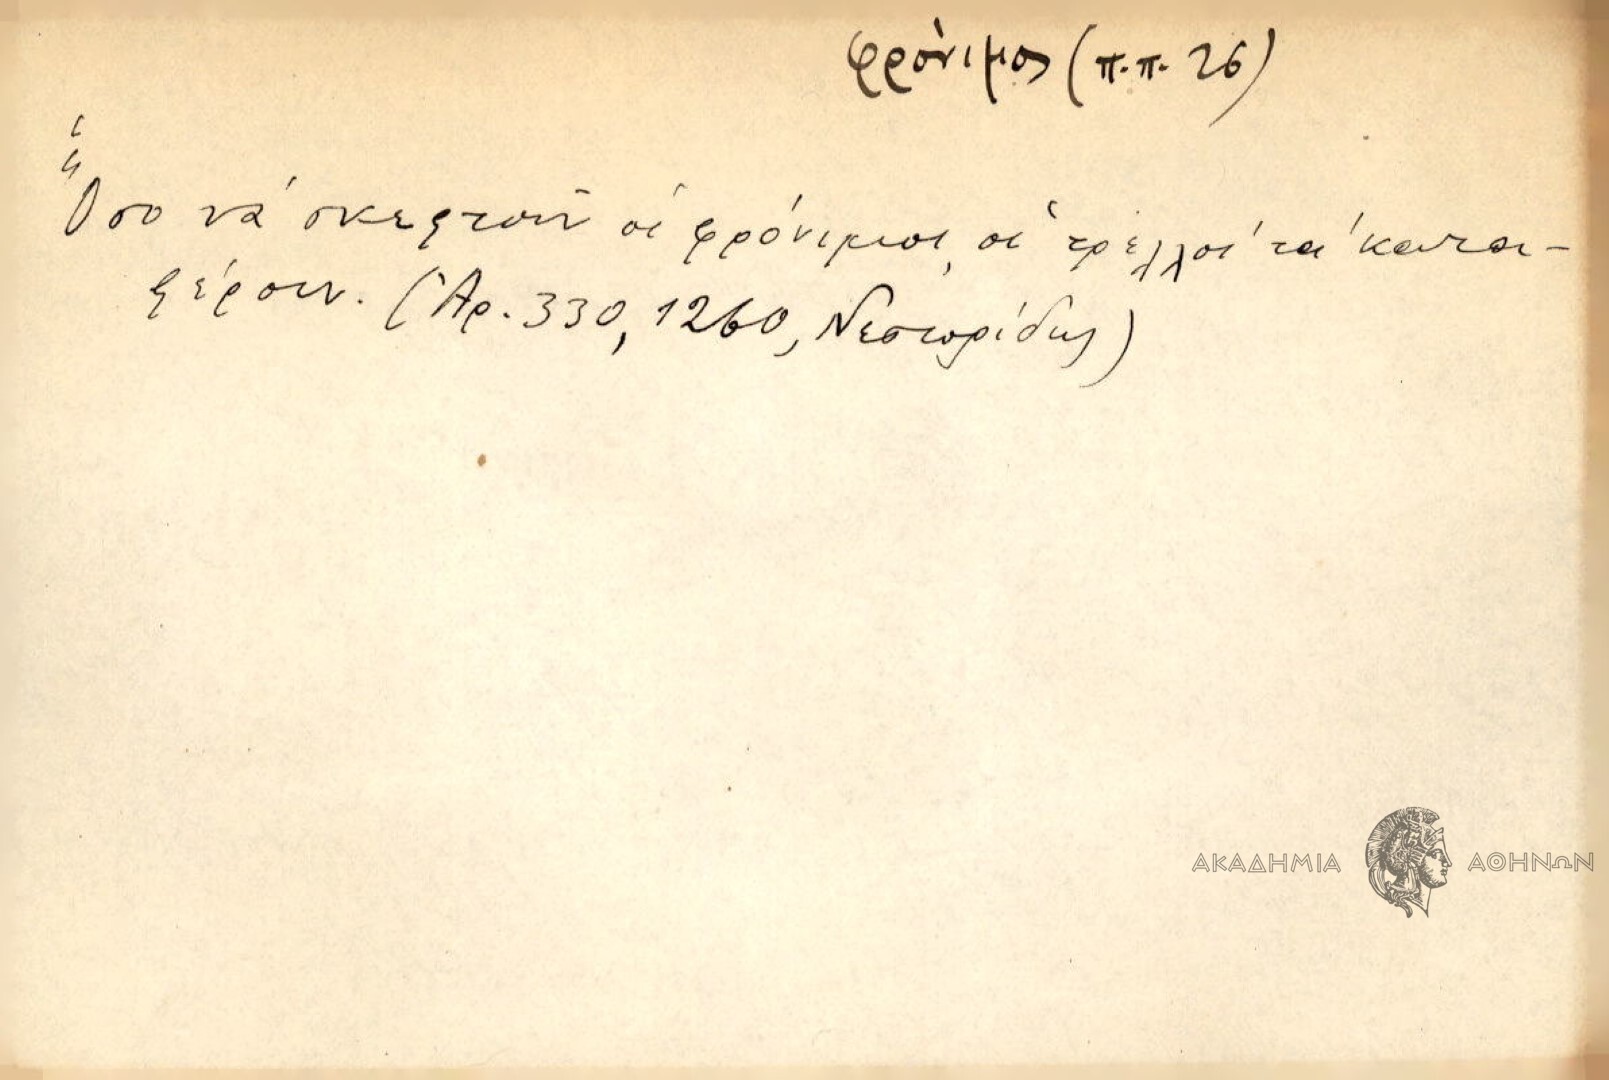 φρόνιμος (π.π. 26)
Ὅσο νά σκεφτοῦν οἱ φρόνιμοι, οἱ τρελλοί τά κατα-
φέρουν. (Ἀρ. 330, 1260, Νεστορίδης)
ΑΚΑΔΗΜΙΑ ΑΘΗΝΩΝ